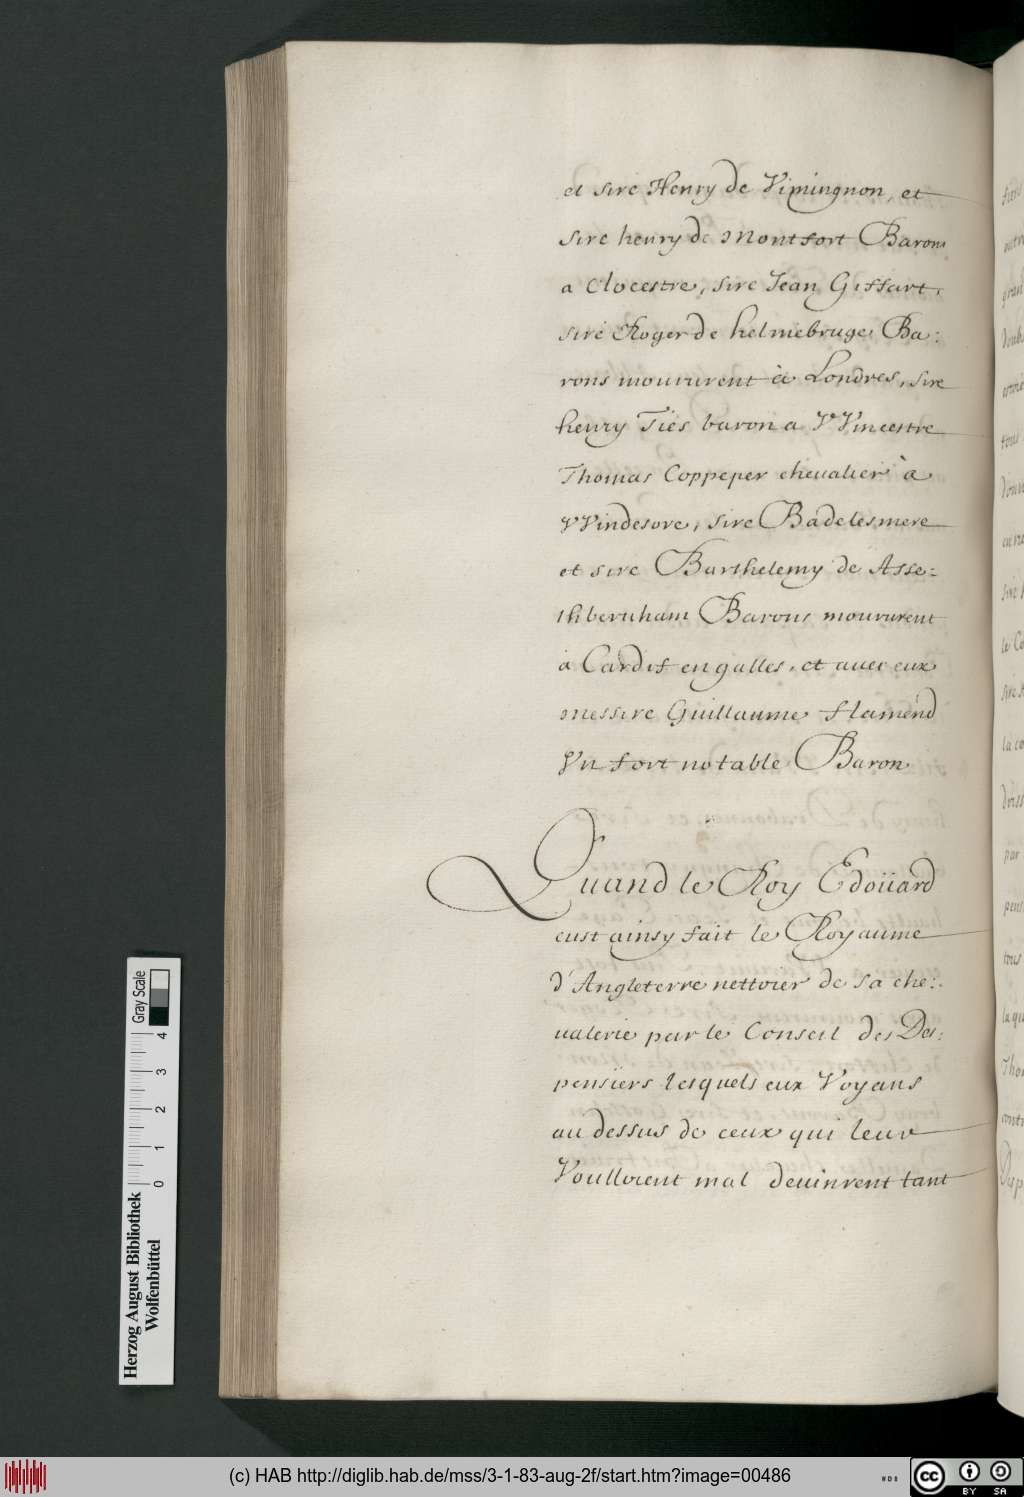 et sire Henry de Vimingnon, et
sire henry de Montfort Barons
a Clocestre, sire Jean Giffart,
sire Roger de helmebruge Ba:
rons moururent à Londres, sire
henry Tiés baron a VVincestre
Thomas Coppeper chevalier à
VVindesore, sire Badelesmere
et sire Barthelemy de Asse:
thbernham Barons moururent
à Cardif en galles, et avec eux
messire Guillaume flamend
Vn fort notable Baron
Quand le Roy Edoüard
eust ainsy fait le Royaume
d'Angleterre nettoier de sa che:
ualerie par le Conseil des Des:
pensiers lesquels eux Voyans
au dessus de ceux qui leur
Voulloient mal deuinrent tant
Herzog August Bibliothek
Wolfenbüttel
0 1 2 3 4
Gray Scale
(c) HAB http://diglib.hab.de/mss/3-1-83-aug-2f/start.htm?image=00486
WDB
cc BY SA